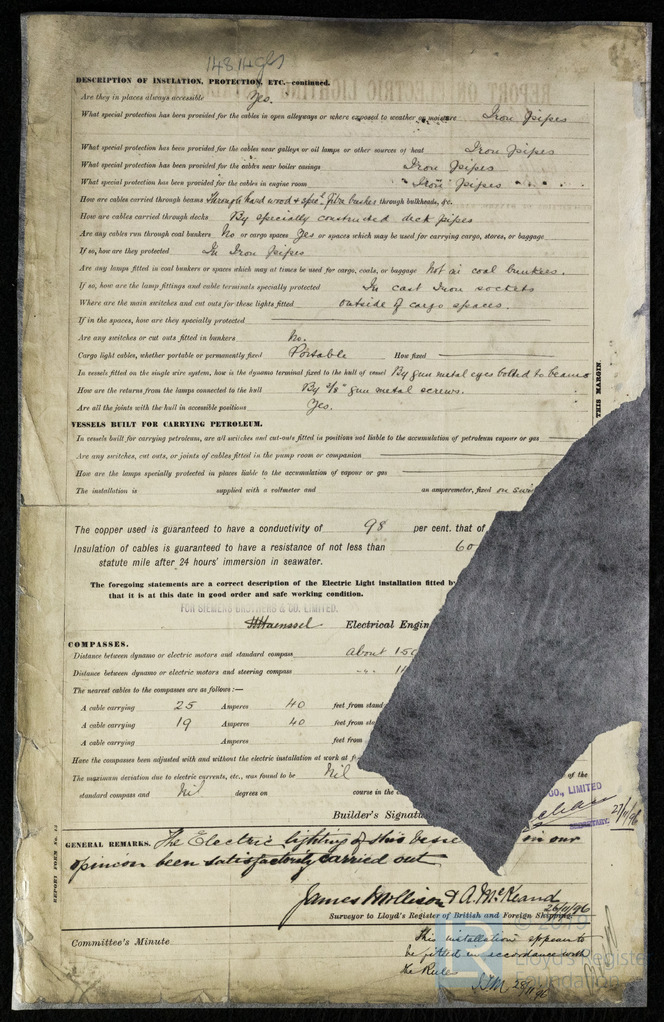 DESCRIPTION OF INSULATION, PROTECTION, ETC.—continued.
Are they in places always accessible Yes.
What special protection has been provided for the cables in open alleyways or where exposed to weather or moisture Iron pipes
What special protection has been provided for the cables near galleys or oil lamps or other sources of heat Iron pipes
What special protection has been provided for the cables near boiler casings Iron pipes
What special protection has been provided for the cables in engine room Iron pipes
How are cables carried through beams Through hard wood & fibre bushes through bulkheads, &c.
How are cables carried through decks By specially constructed deck pipes
Are any cables run through coal bunkers No or cargo spaces Yes or spaces which may be used for carrying cargo, stores, or baggage
If so, how are they protected In Iron pipes
Are any lamps fitted in coal bunkers or spaces which may at times be used for cargo, coals, or baggage Not in coal bunkers.
If so, how are the lamp fittings and cable terminals specially protected In cast Iron sockets
Where are the main switches and cut outs for these lights fitted outside of cargo spaces.
If in the spaces, how are they specially protected
Are any switches or cut outs fitted in bunkers No.
Cargo light cables, whether portable or permanently fixed Portable How fixed
In vessels fitted on the single wire system, how is the dynamo terminal fixed to the hull of vessel By gun metal eyes bolted to beams
How are the returns from the lamps connected to the hull By 3/8" gun metal screws.
Are all the joints with the hull in accessible positions Yes.
THIS MARGIN.
VESSELS BUILT FOR CARRYING PETROLEUM.
In vessels built for carrying petroleum, are all switches and cut-outs fitted in positions not liable to the accumulation of petroleum vapour or gas
Are any switches, cut outs, or joints of cables fitted in the pump room or companion
How are the lamps specially protected in places liable to the accumulation of vapour or gas
The installation is supplied with a voltmeter and an amperemeter, fixed on
The copper used is guaranteed to have a conductivity of 98 per cent. that of
Insulation of cables is guaranteed to have a resistance of not less than 60
statute mile after 24 hours' immersion in seawater.
The foregoing statements are a correct description of the Electric Light installation fitted by
that it is at this date in good order and safe working condition.
FOR SIEMENS BROTHERS & CO. LIMITED.
Electrical Engin
COMPASSES.
Distance between dynamo or electric motors and standard compass about 150
Distance between dynamo or electric motors and steering compass
The nearest cables to the compasses are as follows:—
A cable carrying 25 Amperes 40 feet from stand
A cable carrying 19 Amperes 40 feet from
A cable carrying Amperes feet from
Have the compasses been adjusted with and without the electric installation at work at
The maximum deviation due to electric currents, etc., was found to be Nil of the
standard compass and Nil degrees on course in the
CO., LIMITED
SECRETARY. 27/11/96
Builder's Signatu
REPORT FORM No.
GENERAL REMARKS. The Electric lighting of this vesse in our
opinion been satisfactorily carried out
James Mollison & A. McKeand
26/11/96
Surveyor to Lloyd's Register of British and Foreign Shipping.
Committee's Minute
This installation appears to
be fitted in accordance with
the Rules
28/11/96
© 2019
Lloyd's Register
Foundation